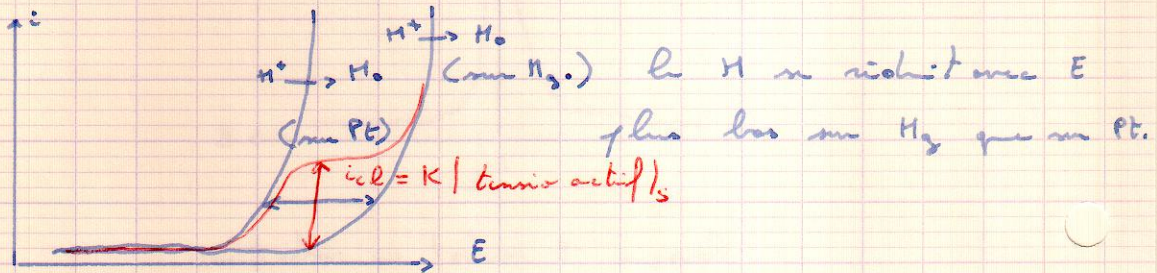 i
H⁺ → H₀
H⁺ → H₀ (sur Hg₀) le H se réduit avec E
(sur Pt) plus bas sur Hg que sur Pt.
icl = K | tensio actif |s
E